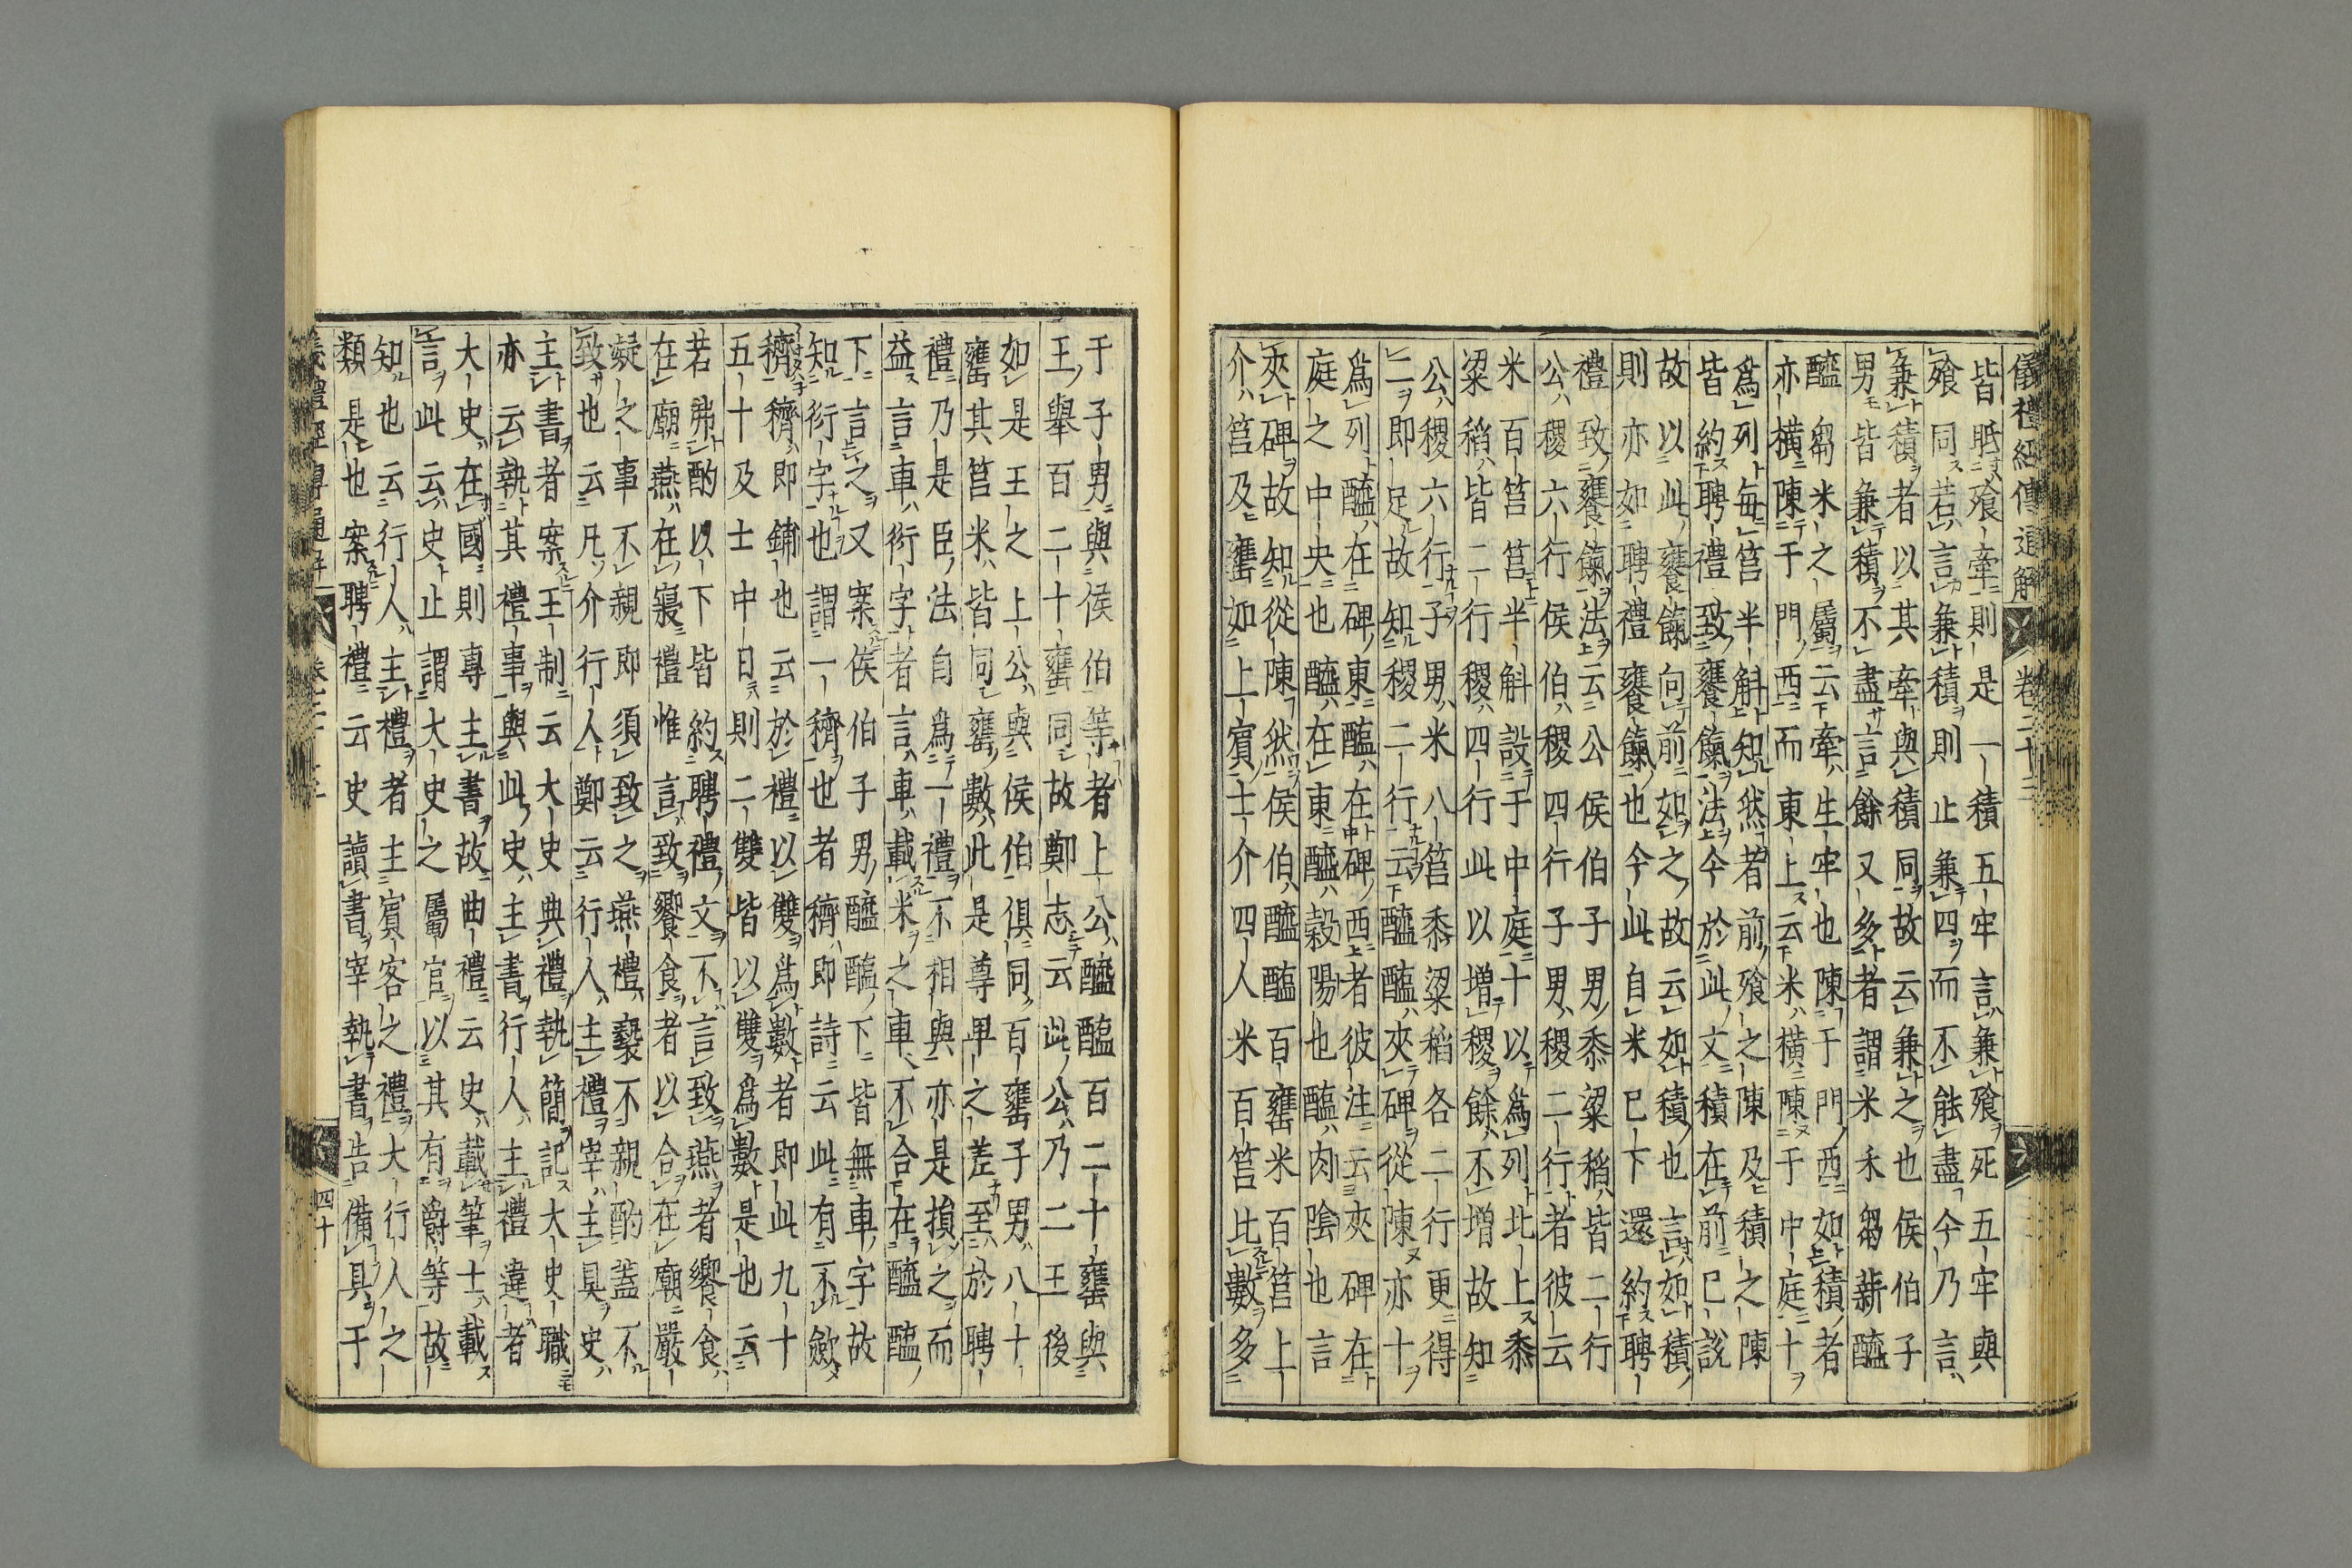 儀禮經傳通解 卷二十二
皆眂飧牽則是一積五牢言兼飧死五牢與
飧同若言兼積則止兼四而不能盡今乃言
兼積者以其牽與積同故云兼之也侯伯子
男皆兼積不盡言餘又多者謂米禾芻薪醯
醯芻米之屬云牽生牢也陳于門西如積者
亦橫陳于門西而東上云米橫陳于中庭十
爲列每筥半斛知然者前飧之陳及積之陳
皆約聘禮致饔餼法今於此文積在前已說
故以此饔餼向前如之故云如積也言如積
則亦如聘禮饔餼也今此自米已下還約聘
禮致饔餼法云公侯伯子男黍粱稻皆二行
公稷六行侯伯稷四行子男稷二行者彼云
米百筥筥半斛設于中庭十以爲列北上黍
粱稻皆二行稷四行此以增稷餘不增故知
公稷六行子男米八筥黍粱稻各二行更得
二即足故知稷二行云醯醢夾碑從陳亦十
爲列醯在碑東醢在碑西者彼注云夾碑在
庭之中央也醯在東醯穀陽也醢肉陰也言
夾碑故知從陳然侯伯醯醢百罋米百筥上
介筥及罋如上賓士介四人米百筥比數多
于子男與侯伯等者上公醯醢百二十罋與
王舉百二十罋同故鄭志云此公乃二王後
如是王之上公與侯伯俱同百罋子男八十
罋其筥米皆同罋數此是尊卑之差至於聘
禮乃是臣法自爲一禮不相與亦是損之而
益言車衍字者言車載米之車不合在醯醢
下言之又案侯伯子男醯醢下皆無車字故
知衍字也謂一穧也者穧即詩云此有不斂
穧穧即鋪也云於禮以雙爲數者即此九十
五十及士中日則二雙皆以雙爲數是也云
若弗酌以下皆約聘禮文不言致燕者饗食
在廟燕在寢禮惟言致饗食者以合在廟嚴
凝之事不親即須致之燕禮褻不親酌蓋不
致也云凡介行人鄭云行人主禮宰主具史
主書者案王制云大史典禮執簡記大史職
亦云執其禮事與此史主書行人主禮違者
大史在國則專主書故曲禮云史載筆士載
言此云史止謂大史之屬官以其有爵等故
知也云行人主禮者主賓客之禮大行人之
類是也案聘禮云史讀書宰執書告備具于
四十